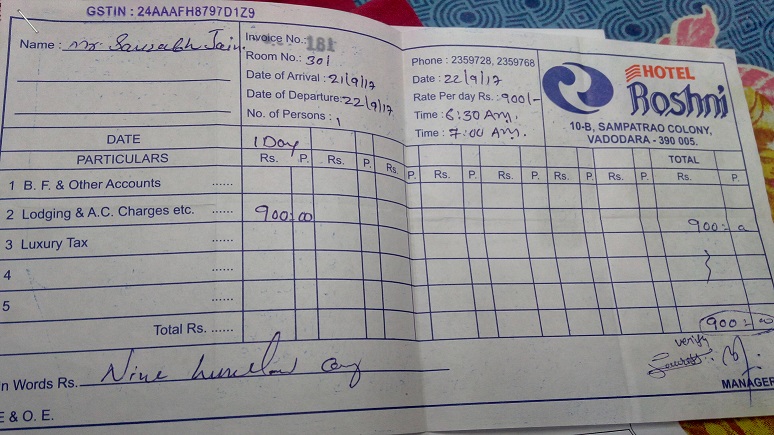 GSTIN : 24AAAFH8797D1Z9
Name : Mr Saurabh Jain
Invoice No.: 181
Room No.: 301
Date of Arrival : 21/9/17
Date of Departure: 22/9/17
No. of Persons : 1
Phone : 2359728, 2359768
Date : 22/9/17
Rate Per day Rs. : 900/-
Time : 6:30 AM.
Time : 7:00 AM.
HOTEL
Roshni
10-B, SAMPATRAO COLONY,
VADODARA - 390 005.
DATE 1 Day TOTAL
PARTICULARS Rs. P. Rs. P. Rs. P. Rs. P. Rs. P. Rs. P. Rs. P.
1 B. F. & Other Accounts ......
2 Lodging & A.C. Charges etc. ...... 900=00 900=
3 Luxury Tax ......
4 ......
5 ......
Total Rs. ...... 900=00
In Words Rs. Nine hundred only
verify
MANAGER
E & O. E.